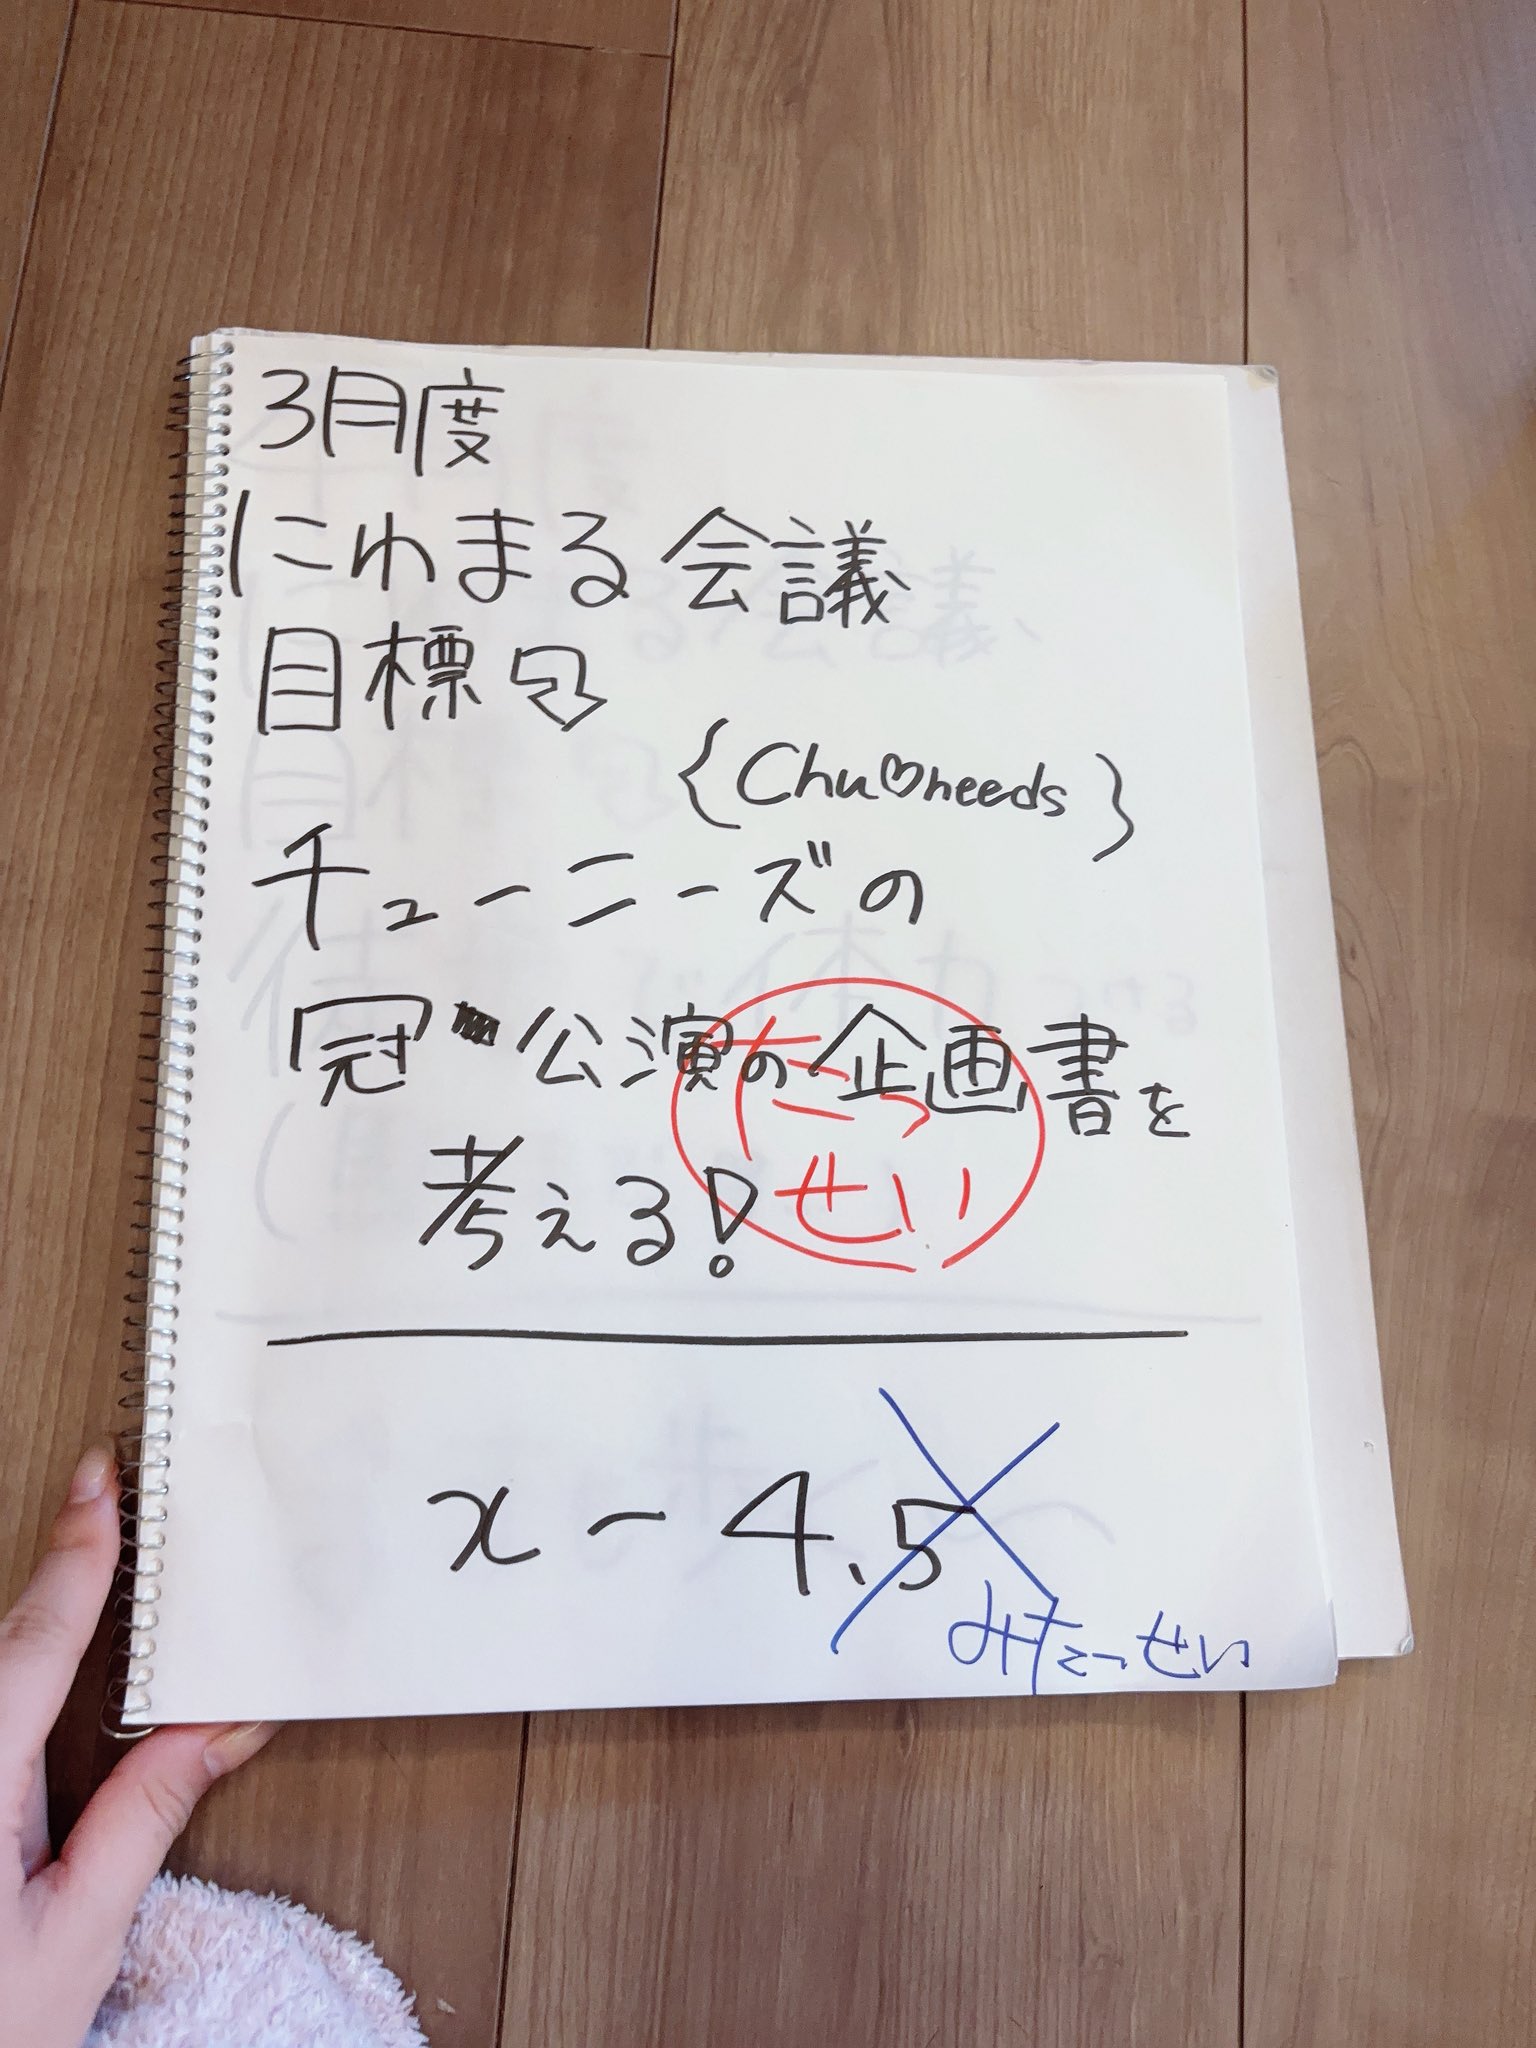 3月度
にゎまる会議
目標
{Chu♡needs}
チューニーズの
冠公演の企画書を
たっ
せい
考える!
x-4.5
みたっせい